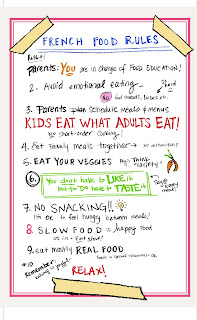 FRENCH FOOD RULES
RULE #1
Parents: You are in charge of FOOD EDUCATION!
2. Avoid emotional eating
NO food rewards, bribes, etc.
3. Parents plan schedule meals & menus
KIDS EAT WHAT ADULTS EAT!
no short-order cooking!
4. Eat family meals together → no distractions
5. EAT YOUR VEGGIES
think "variety"
6. You don't have to LIKE it
but you DO have to TASTE it
7. NO SNACKING!!
It's ok to feel hungry between meals!
8. SLOW FOOD is happy food
as in - Eat slow!
9. eat mostly REAL FOOD
#10
Remember:
RELAX!